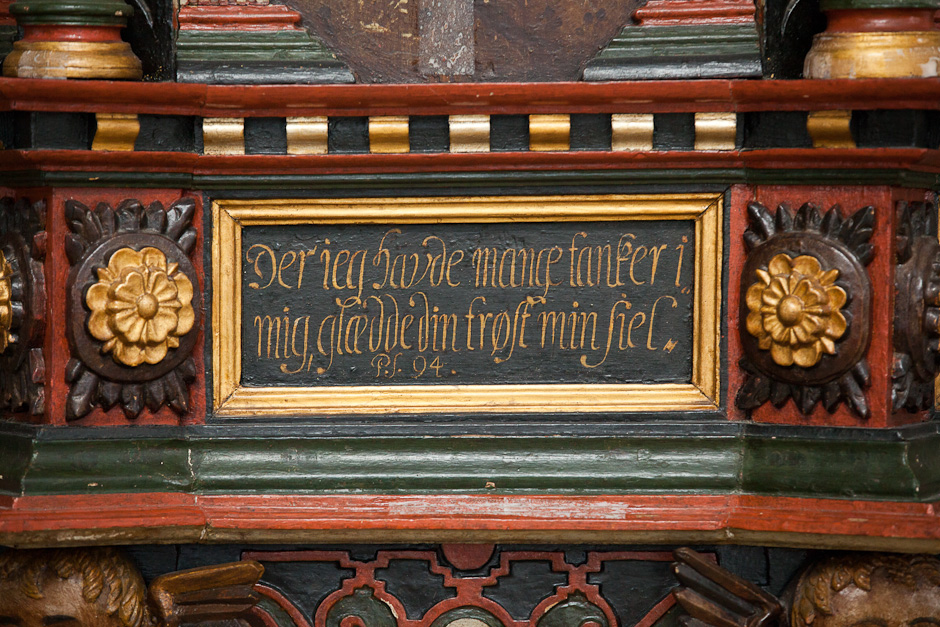 Der ieg havde mange tanker i
mig, glædde din trøst min siel„
Ps. 94.